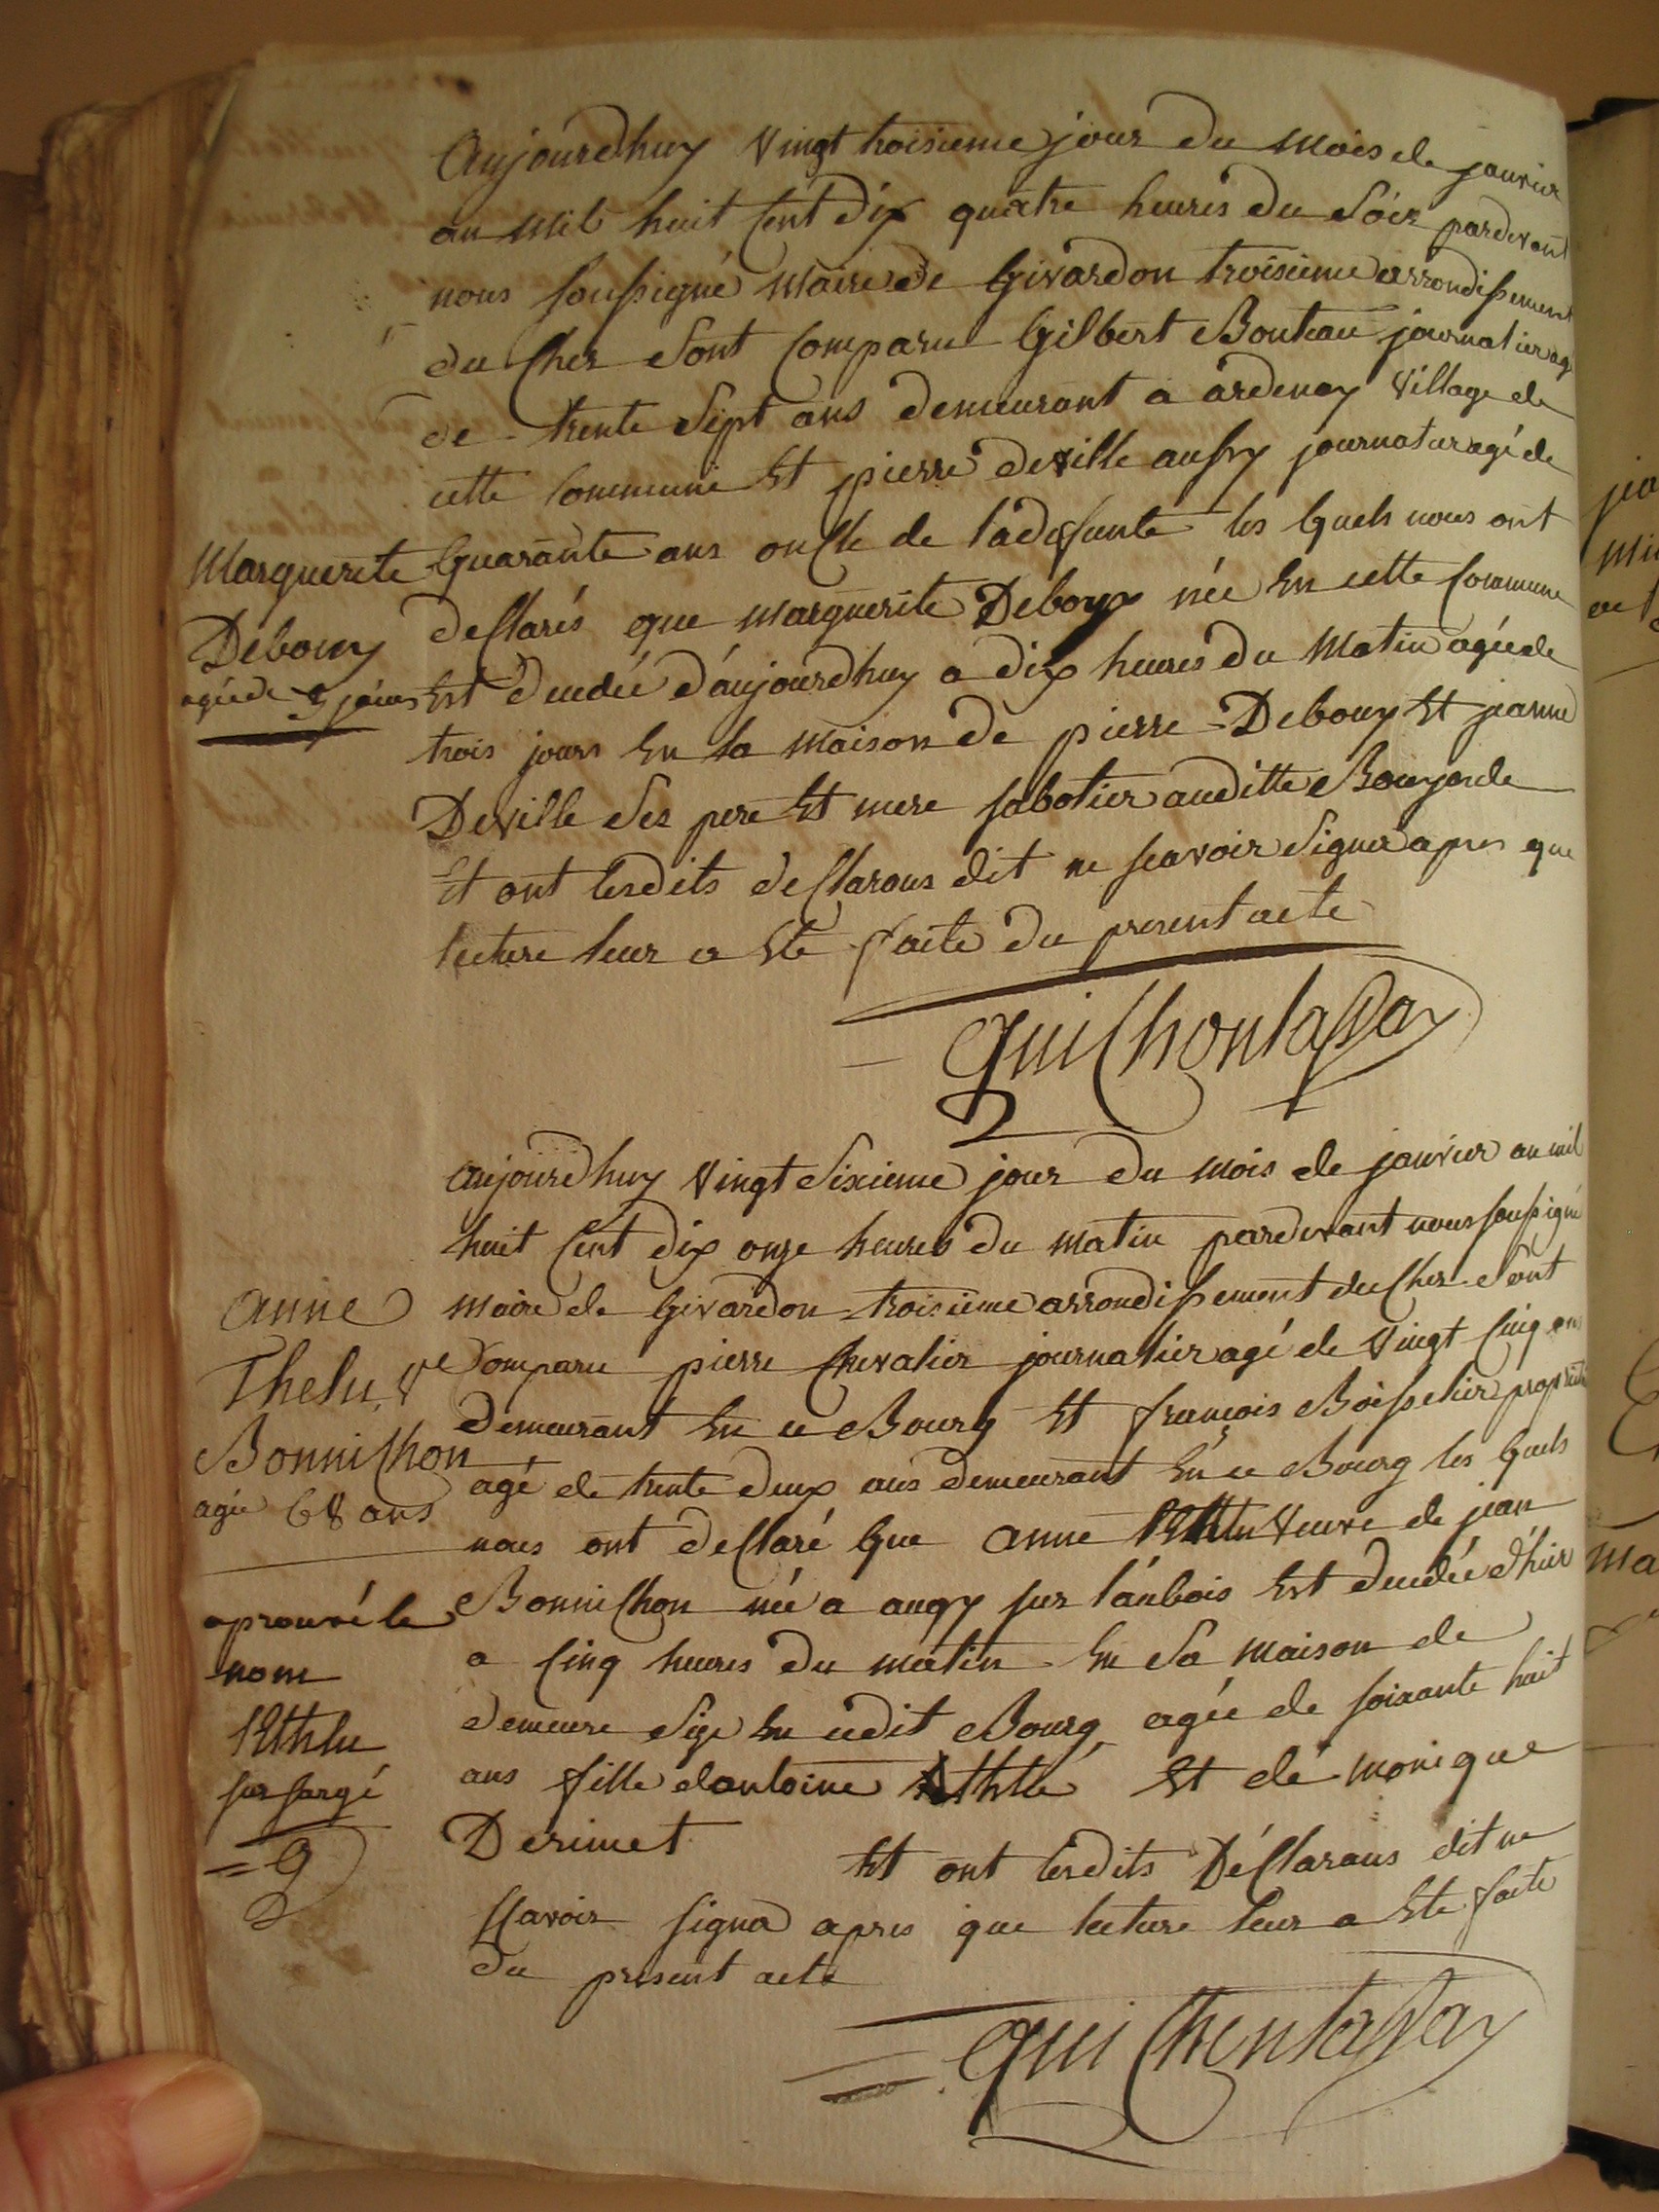 Aujourdhuy vingt troisieme jour du mois de janvier
an mil huit cent dix quatre heures du soir pardevant
nous soussigné maire de Givardon troisieme arrondissement
du Cher sont comparu Gilbert Bouteau journalier agé
de trente sept ans demeurant a ardenay village de
cette commune et pierre deville aussy journalier agé de
Marguerite
Debouy
agée de 3 jours
quarante ans oncle de la defunte les quels nous ont
declarés que marguerite Debouy née en cette commune
est decedée d'aujourdhuy a dix heures du matin agée de
trois jours en la maison de pierre Debouy et jeanne
Deville ses pere et mere sabotier auditte
et ont lesdits declarans dit ne scavoir signer apres que
lecture leur a ete faite du present acte
aujourdhuy vingt sixieme jour du mois de janvier an mil
huit cent dix onze heures du matin pardevant nous soussigné
maire de Givardon troisieme arrondissement du Cher sont
anne
Thelu, ve
Bonnichon
agée 68 ans
comparu pierre Chevalier journalier agé de vingt cinq ans
demeurant en ce Bourg et francois Boisselier
agé de trente deux ans demeurant en ce Bourg les quels
nous ont declaré que anne Ethlu veuve de jean
Bonnichon née a augy sur l'aubois est decedée d'hier
a cinq heures du matin en sa maison de
demeure size en cedit Bourg agée de soixante huit
ans fille d'antoine et de monique
Derimet et ont lesdits Déclarans dit ne
scavoir signer apres que lecture leur a ete faite
du present acte
aprouvé le
nom
Ethlu
sur
= G